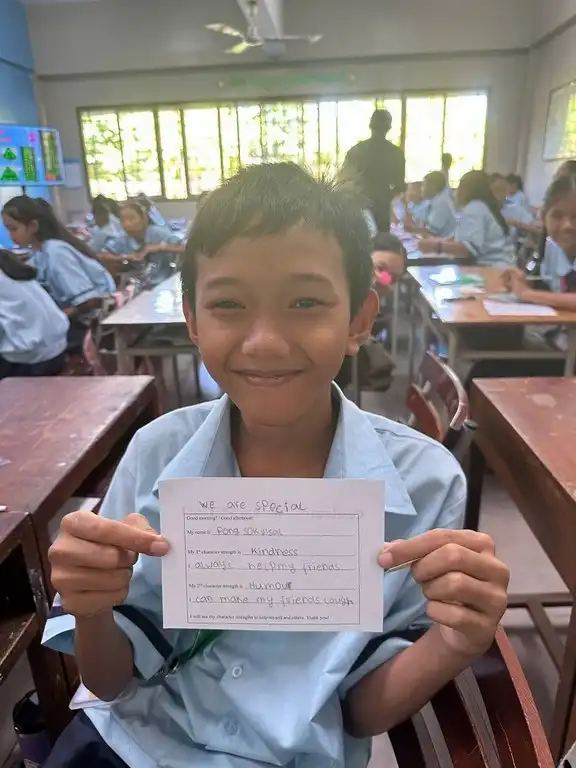 We are special
Good morning! / Good afternoon!
My name is Pong sokvisal
My 1st character strength is Kindness
I always help my friends
My 2nd character strength is Humour
I can make my friends laugh
I will use my character strengths to help myself and others. Thank you!